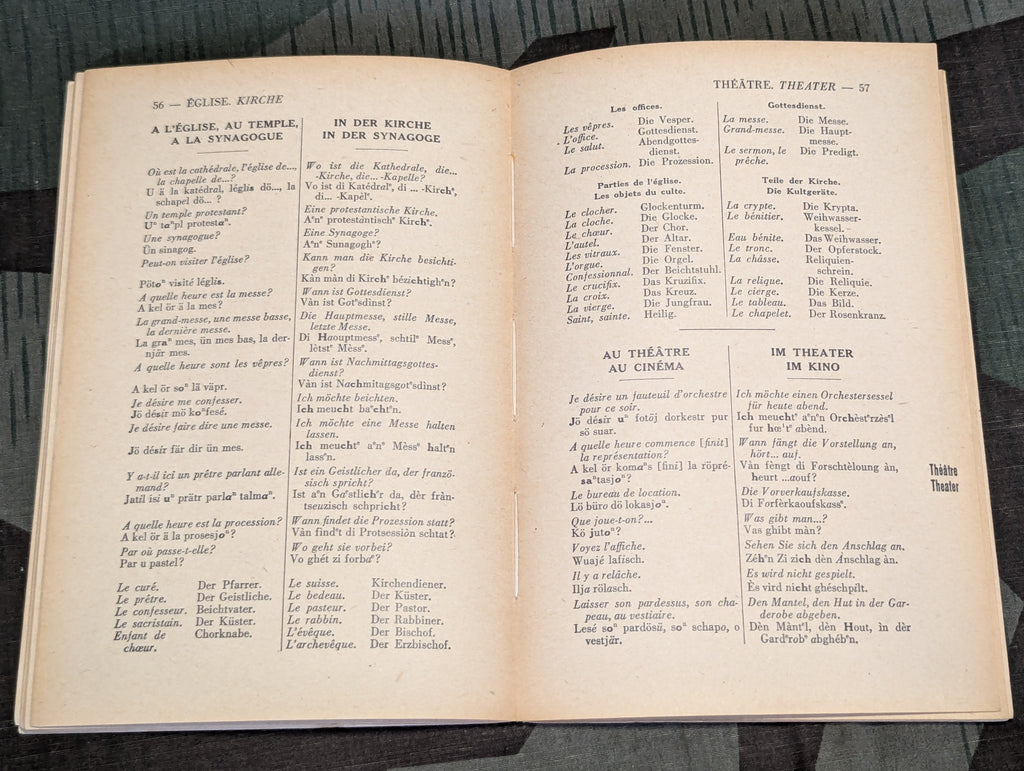 56 — ÉGLISE. KIRCHE
A L'ÉGLISE, AU TEMPLE,
A LA SYNAGOGUE
Où est la cathédrale, l'église de...,
la chapelle de...?
U ä la katédral, léglis dö..., la
schapel dö... ?
Un temple protestant?
Uⁿ taⁿpl protestaⁿ.
Une synagogue?
Ün sinagog.
Peut-on visiter l'église?
Pötoⁿ visité léglis.
A quelle heure est la messe?
A kel ör ä la mes?
La grand-messe, une messe basse,
la dernière messe.
La graⁿ mes, ün mes bas, la der-
njär mes.
A quelle heure sont les vêpres?
A kel ör soⁿ lä väpr.
Je désire me confesser.
Jö désir mö koⁿfesé.
Je désire faire dire une messe.
Jö désir fär dir ün mes.
Y a-t-il ici un prêtre parlant alle-
mand?
Jatil isi uⁿ prätr parlaⁿ talmaⁿ.
A quelle heure est la procession?
A kel ör ä la prosesjoⁿ?
Par où passe-t-elle?
Par u pastel?
IN DER KIRCHE
IN DER SYNAGOGE
Wo ist die Kathedrale, die...
-Kirche, die... -Kapelle?
Vo ist di Katédralᵉ, di ... -Kirchᵉ,
di... -Kapèlᵉ.
Eine protestantische Kirche.
Aᵉnᵉ protèstàntischᵉ Kirchᵉ.
Eine Synagoge?
Aᵉnᵉ Sunagoghᵉ?
Kann man die Kirche besichti-
gen?
Kàn màn di Kirchᵉ bézichtighᵉn?
Wann ist Gottesdienst?
Vàn ist Gotᵉsdinst?
Die Hauptmesse, stille Messe,
letzte Messe.
Di Haouptmessᵉ, schtilᵉ Messᵉ,
lètstᵉ Mèssᵉ.
Wann ist Nachmittagsgottes-
dienst?
Vàn ist Nachmitagsgotᵉsdinst?
Ich möchte beichten.
Ich meucht baᵉchtᵉn.
Ich möchte eine Messe halten
lassen.
Ich meuchtᵉ aᵉnᵉ Mèssᵉ haltᵉn
lassᵉn.
Ist ein Geistlicher da, der franzö-
sisch spricht?
Ist aᵉn Gaᵉstlichᵉr da, dèr fràn-
tseuzisch schpricht?
Wann findet die Prozession statt?
Vàn findᵉt di Protsessiôn schtat?
Wo geht sie vorbei?
Vo ghét zi forbaᵉ?
Le curé. Der Pfarrer.
Le prêtre. Der Geistliche.
Le confesseur. Beichtvater.
Le sacristain. Der Küster.
Enfant de Chorknabe.
chœur.
Le suisse. Kirchendiener.
Le bedeau. Der Küster.
Le pasteur. Der Pastor.
Le rabbin. Der Rabbiner.
L'évêque. Der Bischof.
L'archevêque. Der Erzbischof.
THÉÂTRE. THEATER — 57
Les offices.
Les vêpres. Die Vesper.
L'office. Gottesdienst.
Le salut. Abendgottes-
dienst.
La procession. Die Prozession.
Gottesdienst.
La messe. Die Messe.
Grand-messe. Die Haupt-
messe.
Le sermon, le Die Predigt.
prêche.
Parties de l'église.
Les objets du culte.
Le clocher. Glockenturm.
La cloche. Die Glocke.
Le chœur. Der Chor.
L'autel. Der Altar.
Les vitraux. Die Fenster.
L'orgue. Die Orgel.
Confessionnal. Der Beichtstuhl.
Le crucifix. Das Kruzifix.
La croix. Das Kreuz.
La vierge. Die Jungfrau.
Saint, sainte. Heilig.
Teile der Kirche.
Die Kultgeräte.
La crypte. Die Krypta.
Le bénitier. Weihwasser-
kessel.
Eau bénite. Das Weihwasser.
Le tronc. Der Opferstock.
La châsse. Reliquien-
schrein.
La relique. Die Reliquie.
Le cierge. Die Kerze.
Le tableau. Das Bild.
Le chapelet. Der Rosenkranz.
AU THÉÂTRE
AU CINÉMA
Je désire un fauteuil d'orchestre
pour ce soir.
Jö désir uⁿ fotöj dorkestr pur
sö suar.
A quelle heure commence [finit]
la représentation?
A kel ör komaⁿs [fini] la röpré-
saⁿtasjoⁿ?
Le bureau de location.
Lö büro dö lokasjoⁿ.
Que joue-t-on?...
Kö jutoⁿ?
Voyez l'affiche.
Wuajé lafisch.
Il y a relâche.
Ilja rölasch.
Laisser son pardessus, son cha-
peau, au vestiaire.
Lesé soⁿ pardösü, soⁿ schapo, o
vestjär.
IM THEATER
IM KINO
Ich möchte einen Orchestersessel
für heute abend.
Ich meuchtᵉ aᵉnᵉn Orchèstᵉrzèsᵉl
fur hœᵉtᵉ abènd.
Wann fängt die Vorstellung an,
hört... auf.
Vàn fèngt di Forschtèloung àn,
heurt ...aouf?
Die Vorverkaufskasse.
Di Forfèrkaoufskassᵉ.
Was gibt man...?
Vas ghibt màn?
Sehen Sie sich den Anschlag an.
Zéhᵉn Zi zich dèn Ànschlag àn.
Es wird nicht gespielt.
Ès vird nicht ghéschpilt.
Den Mantel, den Hut in der Gar-
derobe abgeben.
Dèn Màntᵉl, dèn Hout, in dèr
Gardᵉrobᵉ abghébᵉn.
Théâtre
Theater